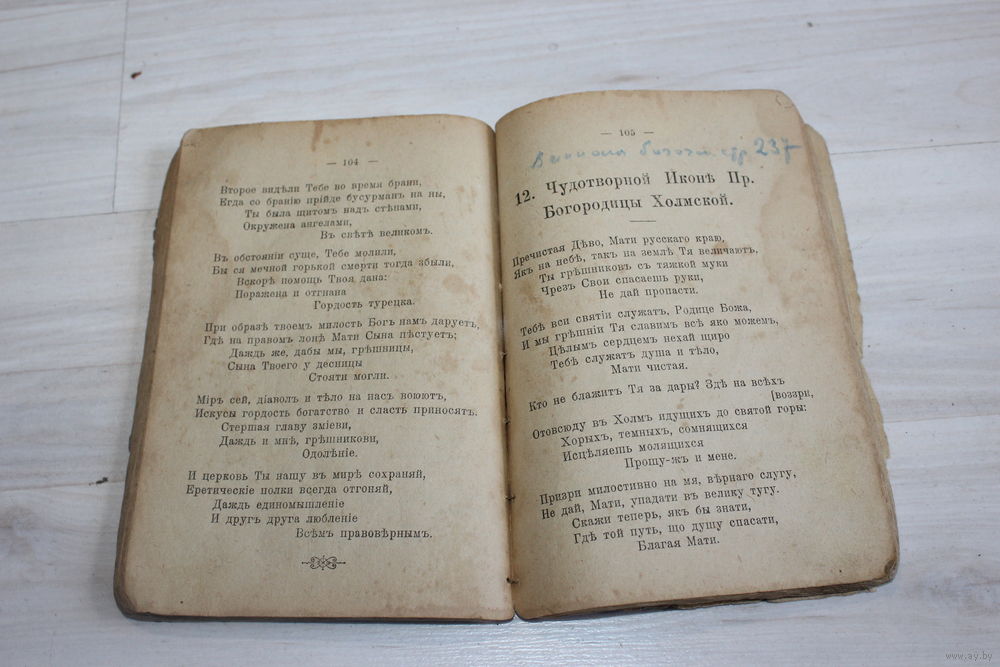 — 104 —
Второе видѣли Тебе во время брани,
Егда со бранію прійде бусурманъ на ны,
Ты была щитомъ надъ стѣнами,
Окружена ангелами,
Въ свѣтѣ великомъ.
Въ обстояніи суще, Тебе молили,
Бы ся мечной горькой смерти тогда збыли,
Вскорѣ помощь Твоя дана:
Поражена и отгнана
Гордость турецка.
При образѣ твоемъ милость Богъ намъ даруетъ,
Гдѣ на правомъ лонѣ Мати Сына пѣстуетъ;
Даждь же, дабы мы, грѣшницы,
Сына Твоего у десницы
Стояти могли.
Міръ сей, діаволъ и тѣло на насъ воюютъ,
Искусы гордость богатство и сласть приносятъ.
Стершая главу зміеви,
Даждь и мнѣ, грѣшникови,
Одолѣніе.
И церковь Ты нашу въ мирѣ сохраняй,
Еретическіе полки всегда отгоняй,
Даждь единомышленіе
И другъ друга любленіе
Всѣмъ правовѣрнымъ.
— 105 —
стр 237
12. Чудотворной Иконѣ Пр.
Богородицы Холмской.
Пречистая Дѣво, Мати русскаго краю,
Якъ на небѣ, такъ на землѣ Тя величаютъ,
Ты грѣшниковъ съ тяжкой муки
Чрезъ Свои спасаешь руки,
Не дай пропасти.
Тебѣ вси святіи служатъ, Родице Божа,
И мы грѣшніи Тя славимъ всѣ яко можемъ,
Цѣлымъ сердцемъ нехай щиро
Тебѣ служатъ душа и тѣло,
Мати чистая.
Кто не блажитъ Тя за дары? Здѣ на всѣхъ
[воззри,
Отовсюду въ Холмъ идущихъ до святой горы:
Хорыхъ, темныхъ, сомнящихся
Исцѣляешь молящихся
Прошу-жъ и мене.
Призри милостивно на мя, вѣрнаго слугу,
Не дай, Мати, упадати въ велику тугу.
Скажи теперь, якъ бы знати,
Гдѣ той путь, що душу спасати,
Благая Мати.
www.ay.by